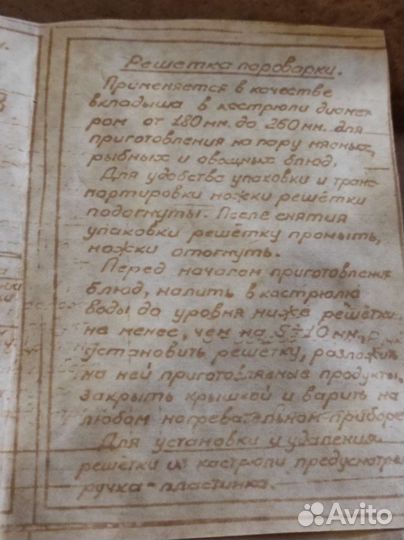 Решетка пароварки.
Применяется в качестве
вкладыша в кастрюли диамет
ром от 180 мм. до 260 мм. для
приготовления на пару мясных,
рыбных и овощных блюд.
Для удобства упаковки и транс
портировки ножки решетки
подогнуты. После снятия
упаковки решетку промыть,
ножки отогнуть.
Перед началом приготовления
блюд, налить в кастрюлю
воды до уровня ниже решетки
не менее, чем на 5÷10 мм,
установить решетку, разложить
на ней приготовляемые продукты,
закрыть крышкой и варить на
любом нагревательном приборе
Для установки и удаления
решетки из кастрюли предусмотре
ручка-пластинка.
Avito